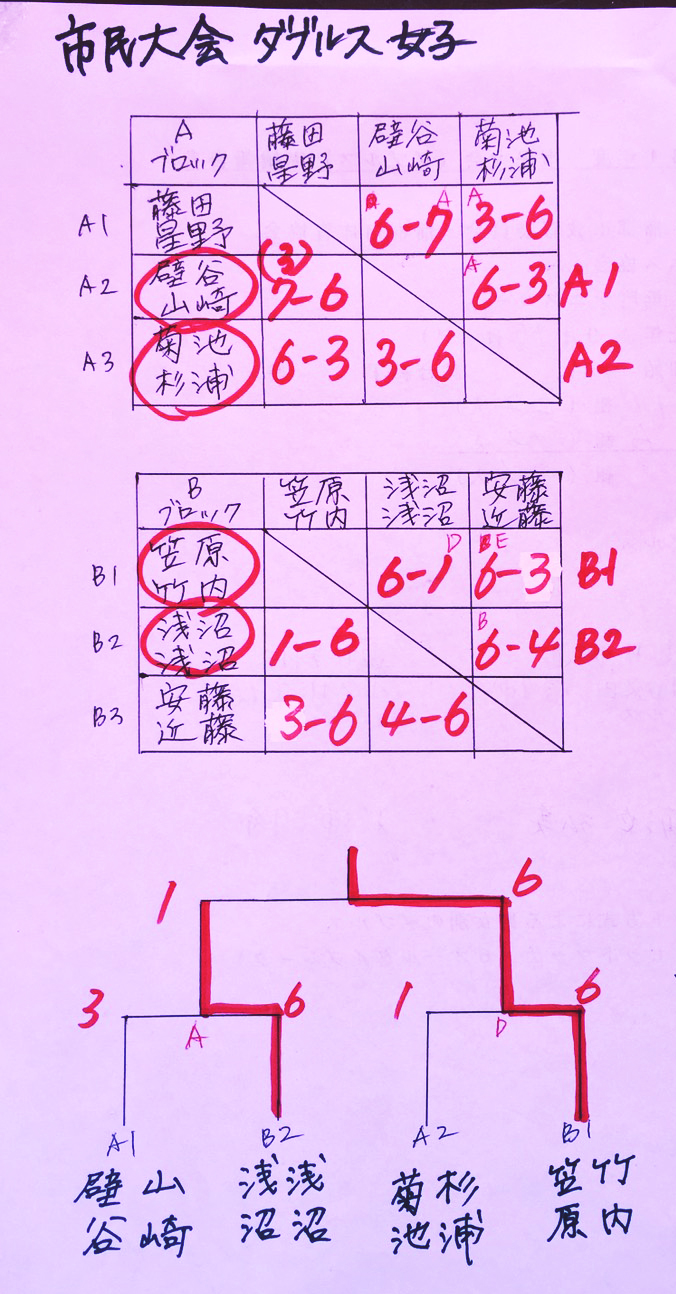 市民大会 ダブルス 女子
A
ブロック
藤田
星野
壁谷
山崎
菊池
杉浦
A1
藤田
星野
A
6-7
A
3-6
A2
壁谷
山崎
(3)
7-6
A
6-3
A1
A3
菊池
杉浦
6-3
3-6
A2
B
ブロック
笠原
竹内
浅沼
浅沼
安藤
近藤
B1
笠原
竹内
D
6-1
E
6-3
B1
B2
浅沼
浅沼
1-6
B
6-4
B2
B3
安藤
近藤
3-6
4-6
1
6
3
6
1
6
A
D
A1
B2
A2
B1
壁 山
谷 崎
浅 浅
沼 沼
菊 杉
池 浦
笠 竹
原 内